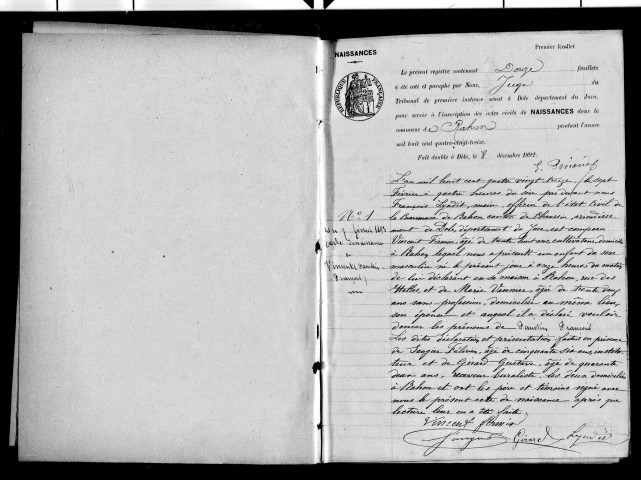 NAISSANCES
Premier feuillet
Le présent registre contenant Douze feuillets
a été coté et paraphé par Nous, Juge du
Tribunal de première instance séant à Dôle département du Jura,
pour servir à l'inscription des actes civils de NAISSANCES dans la
commune de Rahon pendant l'année
mil huit cent quatre-vingt-treize.
Fait double à Dôle, le 8 décembre 1892
REPUBLIQUE FRANÇAISE
N° 1
du 7 février 1893
acte de naissance
de
Vincent Faustin
François
L'an mil huit cent quatre vingt treize, le sept
Février à quatre heures du soir par devant nous
François maire officier de l'état civil de
la Commune de Rahon canton de Chaussin, arrondisse-
ment de Dole, département du Jura, est comparu
Vincent Firmin, âgé de trente huit ans, cultivateur, domicilié
à Rahon, lequel nous a présenté un enfant du sexe
masculin né le présent jour à onze heures du matin
de lui déclarant en sa maison à Rahon, rue des
et de Marie âgée de trente deux
ans sans profession, domiciliée au même lieu,
son épouse et auquel il a déclaré vouloir
donner les prénoms de Faustin François
Les dites déclaration et présentation faites en présence
de âgé de cinquante six ans, institu-
teur et de Girard Gustave, âgé de quarante
deux ans, receveur buraliste, les deux domiciliés
à Rahon et ont les père et témoins signé avec
nous le présent acte de naissance après que
lecture leur en a été faite.
Vincent Firmin
Girard